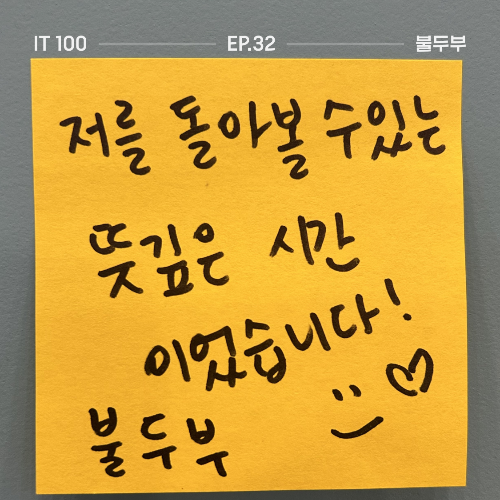 IT 100 EP.32 불두부
저를 돌아볼 수있는
뜻깊은 시간
이었습니다!
불두부